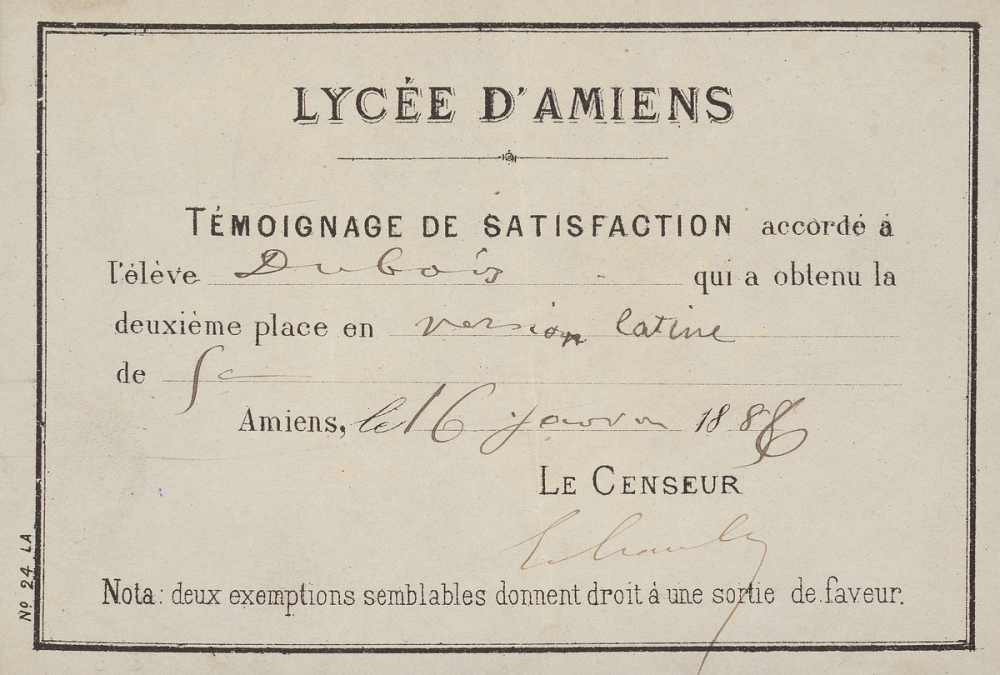 LYCÉE D'AMIENS
TÉMOIGNAGE DE SATISFACTION accordé á
l'élève Dubois qui a obtenu la
deuxième place en version latine
de
Amiens, le 16 janvier 188
LE CENSEUR
Nota: deux exemptions semblables donnent droit á une sortie de faveur.
No 24 LA